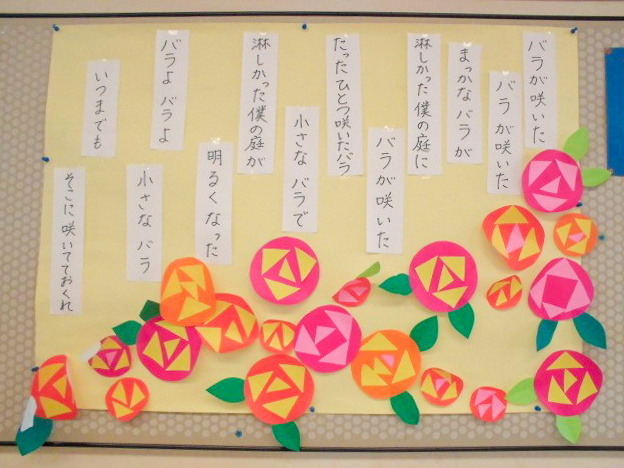 バラが咲いた
バラが咲いた
まっかなバラが
淋しかった僕の庭に
バラが咲いた
たったひとつ咲いたバラ
小さなバラで
淋しかった僕の庭が
明るくなった
バラよ バラよ
小さな バラ
いつまでも
そこに咲いてておくれ